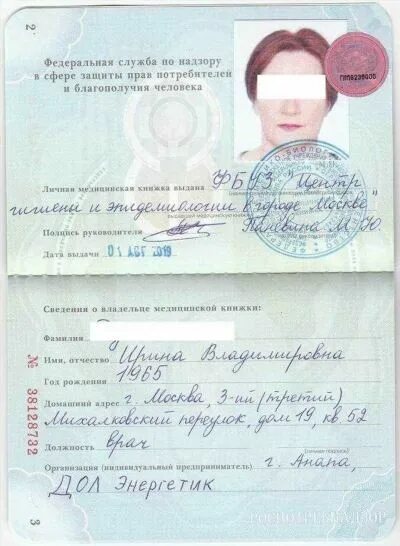 2
Федеральная служба по надзору
в сфере защиты прав потребителей
и благополучия человека
Личная медицинская книжка выдана ФБУЗ "Центр
гигиены и эпидемиологии в городе Москве"
Подпись руководителя
Дата выдачи 01 АВГ 2019
Сведения о владельце медицинской книжки:
Фамилия
Имя, отчество Ирина Владимировна
Год рождения 1965
Домашний адрес г. Москва 3-ий (третий)
Михалковский переулок, дом 19, кв. 52
Должность врач
(личная подпись)
Организация (индивидуальный предприниматель) г. Анапа,
ДОЛ Энергетик
№ 38128732
3
РОСПОТРЕБНАДЗОР